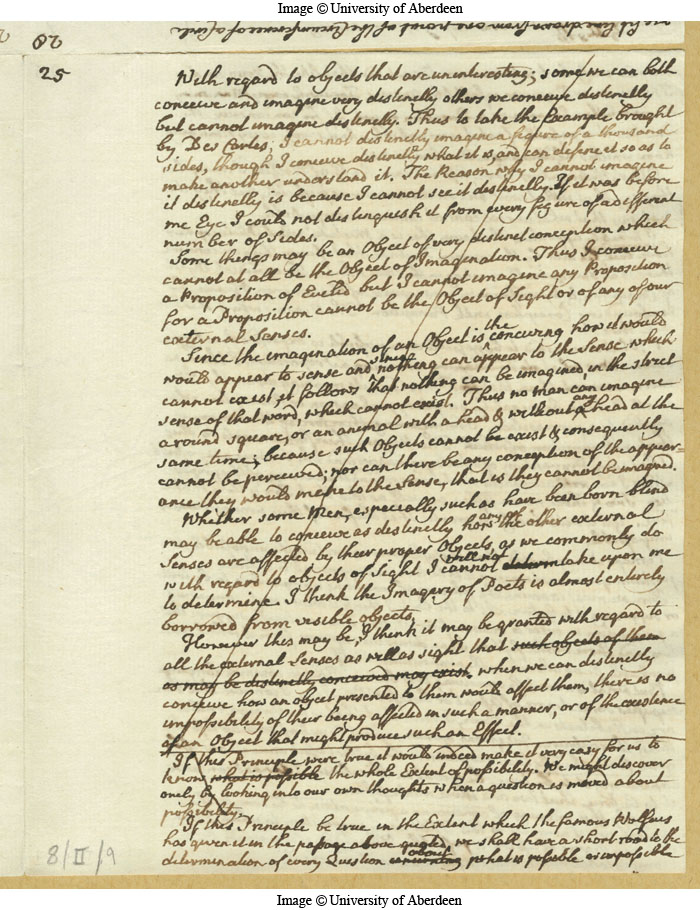 Image © University of Aberdeen
20
25
With regard to objects that are uninteresting; some we can both
conceive and imagine very distinctly others we conceive distinctly
but cannot imagine distinctly. Thus to take the Example brought
by Des Cartes; I cannot distinctly imagine a figure of a thousand
sides, though I conceive distinctly what it is, and can define it so as to
make another understand it. The Reason why I cannot imagine
it distinctly is because I cannot see it distinctly. If it was before
me Eye I could not distinguish it from every figure of a different
number of Sides.
Some things may be an Object of very distinct conception which
cannot at all be the Object of Imagination. Thus I conceive
a Proposition of Euclid but I cannot imagine any Proposition
for a Proposition cannot be the Object of Sight or of any of our
external Senses.
Since the imagination of an Object is the conceiving how it would
would appear to sense and since nothing can appear to the Sense which
cannot exist, it follows that nothing can be imagined, in the strict
sense of that word, which cannot exist. Thus no man can imagine
a round square, or an animal with a head & without any head at the
same time; because such Objects cannot be exist & consequently
cannot be perceived; nor can there be any conception of the appear=
ance they would make to the Sense, that is they cannot be imagined.
Whether some Men, especially such as have been born blind
may be able to conceive as distinctly how any of the other external
Senses are affected by their proper Objects, as we commonly do
with regard to objects of Sight I cannot will not determ take upon me
to determine. I think the Imagery of Poets is almost entirely
borrowed from visible objects.
However this may be, I think it may be granted with regard to
all the external Senses as well as sight that such objects of them
as may be distinctly conceived may exist. when we can distinctly
conceive how an object presented to them would affect them, there is no
impossibility of their being affected in such a manner, or of the existence
of an Object that might produce such an Effect.
If this Principle were true it would indeed make it very easy for us to
know what is possible the whole Extent of possibility. We might discover
onely by looking into our own thoughts when a question is moved about
possibility.
If this Principle be true in the Extent which the famous Wolfius
has given it in the passage above quoted, we shall have a short road to the
determination of every Question concerning about what is possible or impossible
8/II/9
Image © University of Aberdeen